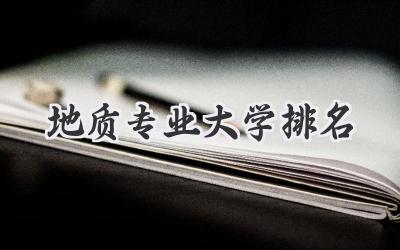 地质专业大学排名